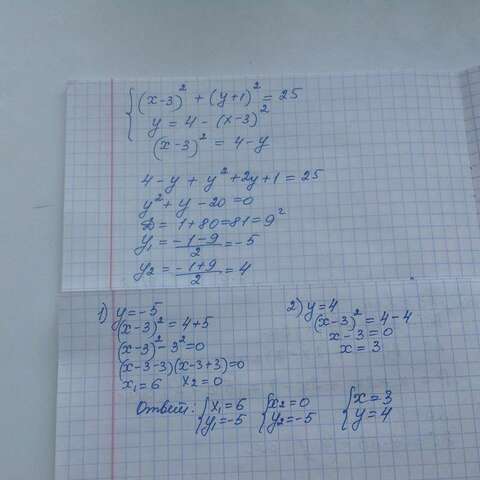 (x-3)² + (y+1)² = 25
y = 4 - (x-3)²
(x-3)² = 4-y
4-y + y² + 2y + 1 = 25
y² + y - 20 = 0
D = 1 + 80 = 81 = 9²
y₁ = (-1-9)/2 = -5
y₂ = (-1+9)/2 = 4
1) y = -5
(x-3)² = 4+5
(x-3)² - 3² = 0
(x-3-3)(x-3+3) = 0
x₁ = 6 x₂ = 0
2) y = 4
(x-3)² = 4-4
x-3 = 0
x = 3
Ответ: { x₁ = 6 { x₂ = 0 { x = 3
y₁ = -5 y₂ = -5 y = 4